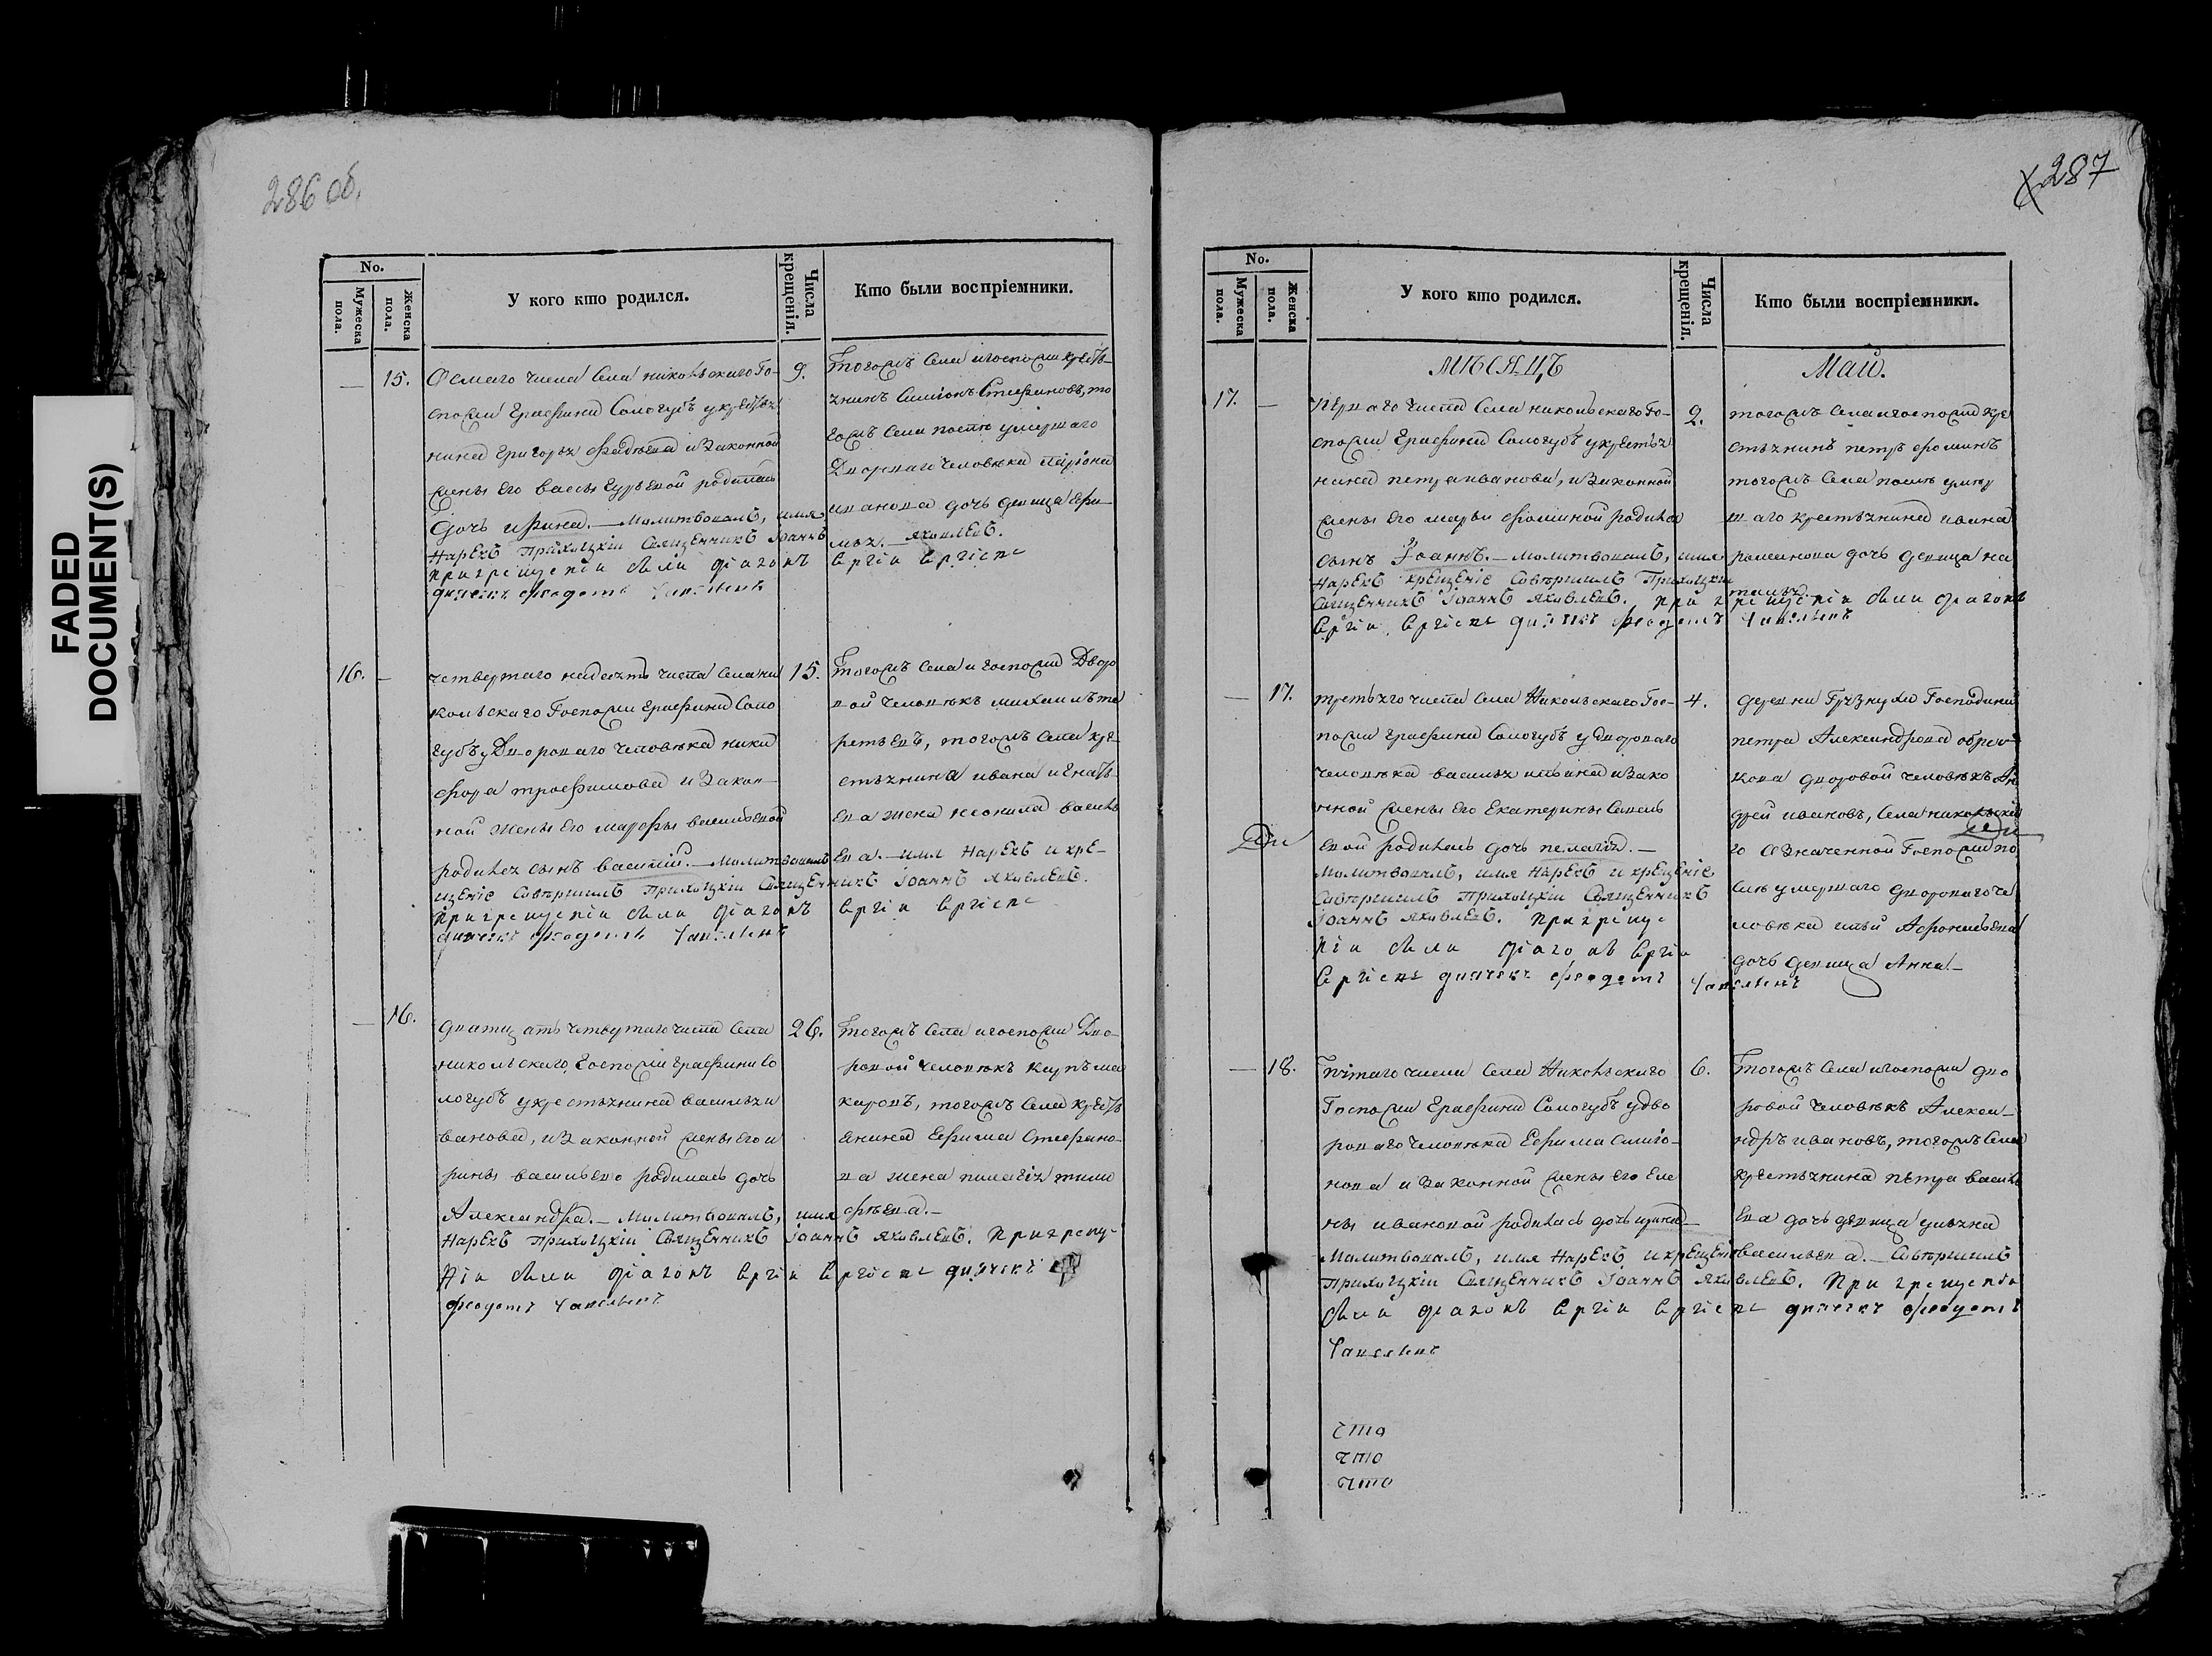 FADED
DOCUMENT(S)
286 об.
No.
Мужеска пола.
Женска пола.
У кого кто родился.
Числа крещенія.
Кто были воспріемники.
15.
Осмаго числа Села никольскаго Го-
спожи Графини Сологубъ у крестья
нина Григорья Фадѣева и Законной
жены Его Васы Гурьевой родилась
дочь ирина. — Молитвовалъ, имя
Нарекъ Приходскіи Священникъ Іоаннъ
Яковлевъ.
при крещеніи были діаконъ
Сергіи Сергіевъ
дьячекъ Феодотъ
9.
Тогожъ Села и госпожи кресть-
янинъ Симіонъ Стефановъ, то
гожъ Села послѣ умершаго
Двороваго человѣка
иванова дочь девица
16.
четвертаго надесять числа Села ни
кольскаго Госпожи Графини Соло
губъ у Двороваго человѣка ники
фора трофимова и Закон-
ной жены Его марфы васильевой
родился сынъ василій. — Молитвовалъ
имя Нарекъ и кре-
щеніе Совершилъ Приходскіи Священникъ Іоаннъ Яковлевъ.
при крещеніи были діаконъ Сергіи Сергіевъ
дьячекъ Феодотъ
15.
Тогожъ Села и госпожи Дворо
вой человѣкъ михаилъ те
рентьевъ, тогожъ Села кре-
стьянина ивана игнать-
ева жена неонила василь
ева.
16.
дватцать четвертаго числа Села
никольскаго, Госпожи Графини Со
логубъ у крестьянина василья и
ванова, и Законной жены его и
рины васильево родилась дочь
Александра. — Молитвовалъ, имя
Нарекъ Приходскіи Священникъ Іоаннъ Яковлевъ. При креще-
ніи были діаконъ Сергіи Сергіевъ дьячекъ
Феодотъ
26.
Тогожъ Села и госпожи Дво-
ровой человѣкъ карпъ ма
каровъ, тогожъ Села кресть
янина Ефима Стефано-
ва жена пелагія тимо
фѣева. —
287
No.
Мужеска пола.
Женска пола.
У кого кто родился.
Числа крещенія.
Кто были воспріемники.
МѢСЯЦЪ
Май.
17.
перваго числа Села никольскаго Го-
спожи Графини Сологубъ у крестья
нина петра иванова, и Законной
жены Его марьи фоминой родился
сынъ Іоаннъ. — Молитвовалъ, имя
Нарекъ крещеніе Совершилъ Приходскіи
Священникъ Іоаннъ Яковлевъ. при крещеніи были діаконъ
Сергіи Сергіевъ дьячекъ Феодотъ
2.
тогожъ Села и госпожи кре
стьянинъ петръ фоминъ
тогожъ Села послѣ умер
шаго крестьянина ивана
романова дочь девица на
талья.
17.
третьяго числа Села Никольскаго Гос-
пожи Графини Сологубъ у двороваго
человѣка василья ильина и Зако
нной жены Его Екатерины
евой родилась дочь пелагія. —
Молитвовалъ, имя Нарекъ и крещеніе
Совершилъ Приходскіи Священникъ
Іоаннъ Яковлевъ. при креще
ніи были діаконъ Сергіи
Сергіевъ дьячекъ Феодотъ
4.
деревни Грузнухи Господина
петра Александрова
дворовой человѣкъ Ан
дрей ивановъ, Села никольска
го означенной Госпожи по
слѣ умершаго двороваго че
ловѣка ильи
дочь девица Анна. —
18.
Пятаго числа Села Никольскаго
Госпожи Графини Сологубъ у дво
роваго человѣка Ефима симіо-
нова и Законной жены Его Еле
ны ивановой родилась дочь ирина —
Молитвовалъ, имя Нарекъ и крещеніе Совершилъ
Приходскіи Священникъ Іоаннъ Яковлевъ. При крещеніи
были діаконъ Сергіи Сергіевъ дьячекъ Феодотъ
6.
Тогожъ Села и госпожи дво
ровой человѣкъ Алекса-
ндръ ивановъ, тогожъ Села
крестьянина петра василь
ева дочь девица ульяна
васильева. —
что
что
что